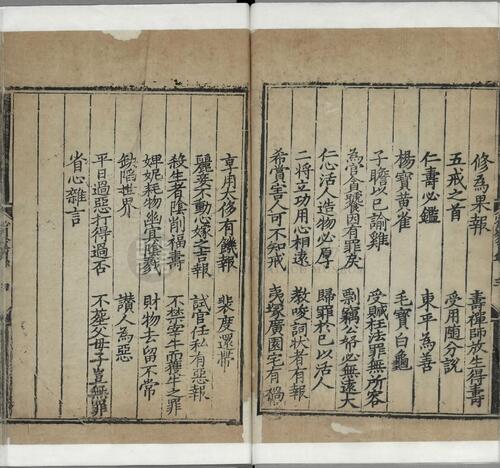 修為果報　壽禪師放生得壽
五戒之首　受用随分說
仁壽必鑑　東平為善
楊寶黃雀　毛寶白龜
子瞻以己諭雞　受贓枉法罪無所容
為官貪虐因有罪矣　剽竊公格必無遠大
仁心活人造物必厚　歸罪於己以活人
二將立功用心相遠　教唆詞狀者有報
希賞害人可不知戒　夷塚廣園宅有禍
享用太侈有饑報　裴度還帶
麗英不動心嫁之吉報　試官任私有惡報
殺生者陰削福壽　不禁宰牛而獲牛之罪
婢妮耗物幽冥陰戮　財物去留不常
缺陷世界　讃人為惡
平日過惡打得過否　不葬父母子豈無罪
省心雜言